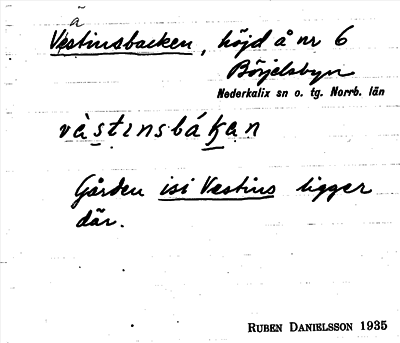 ä
Västinsbacken, höjd å nr 6
Börjelsbyn
Nederkalix sn o. tg. Norrb. län
vàstınsbákan
Gården isi Västins ligger
där.
RUBEN DANIELSSON 1935